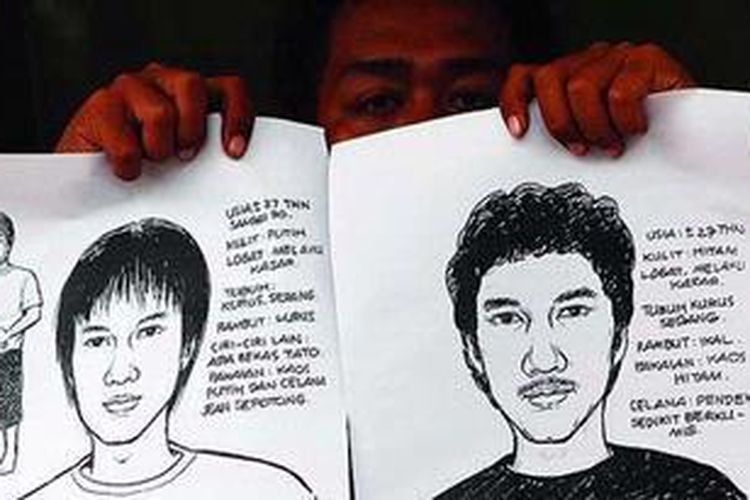 USIA ± 27 THN
KULIT : PUTIH
LOGAT : MELAYU
KASAR
TUBUH :
KURUS SEDANG
RAMBUT : LURUS
CIRI-CIRI LAIN :
ADA BEKAS TATO
PAKAIAN : KAOS
PUTIH DAN CELANA
JEAN SEPOTONG.
USIA : ± 27 THN
KULIT : HITAM
LOGAT : MELAYU
KASAR.
TUBUH KURUS
SEDANG.
RAMBUT : IKAL.
PAKAIAN : KAOS
HITAM.
CELANA : PENDEK
SEDIKIT BERKU-
MIS.